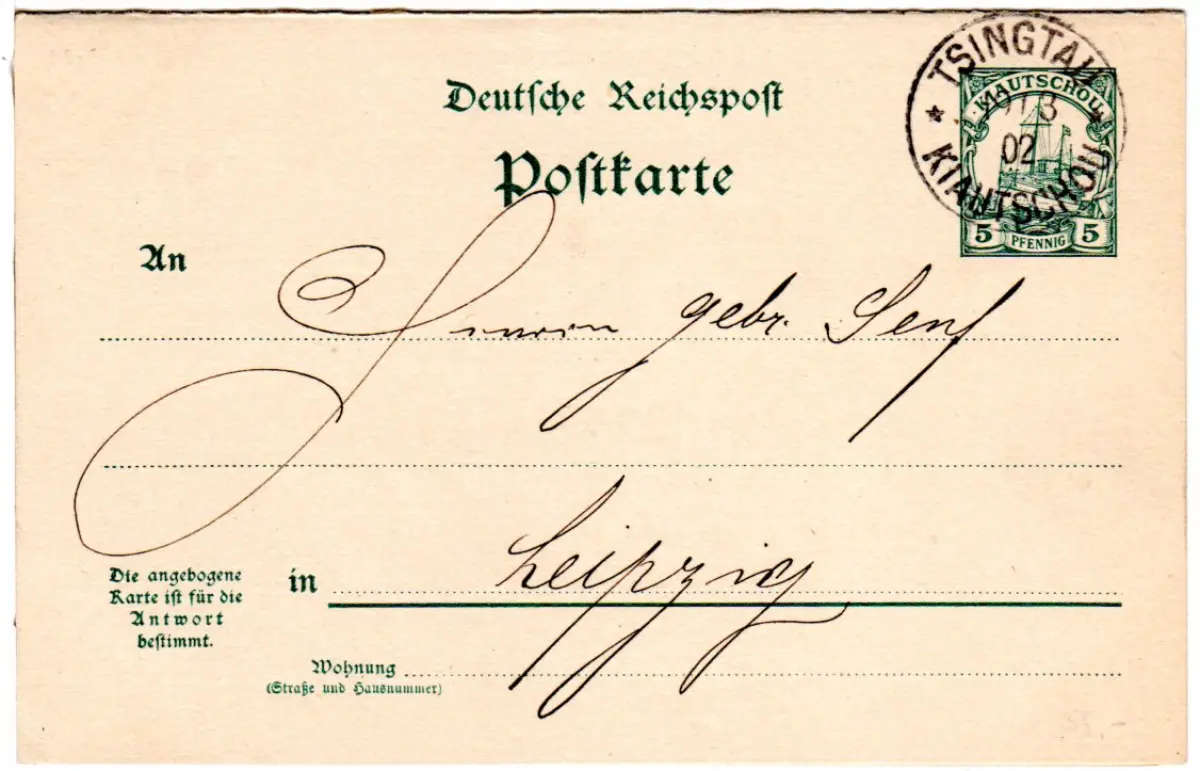 Deutsche Reichspost
Postkarte
TSINGTAU
KIAUTSCHOU
02
KIAUTSCHOU
5 PFENNIG 5
An
gebr. Senf
Leipzig
in
Die angebogene
Karte ist für die
Antwort
bestimmt.
Wohnung
(Straße und Hausnummer)